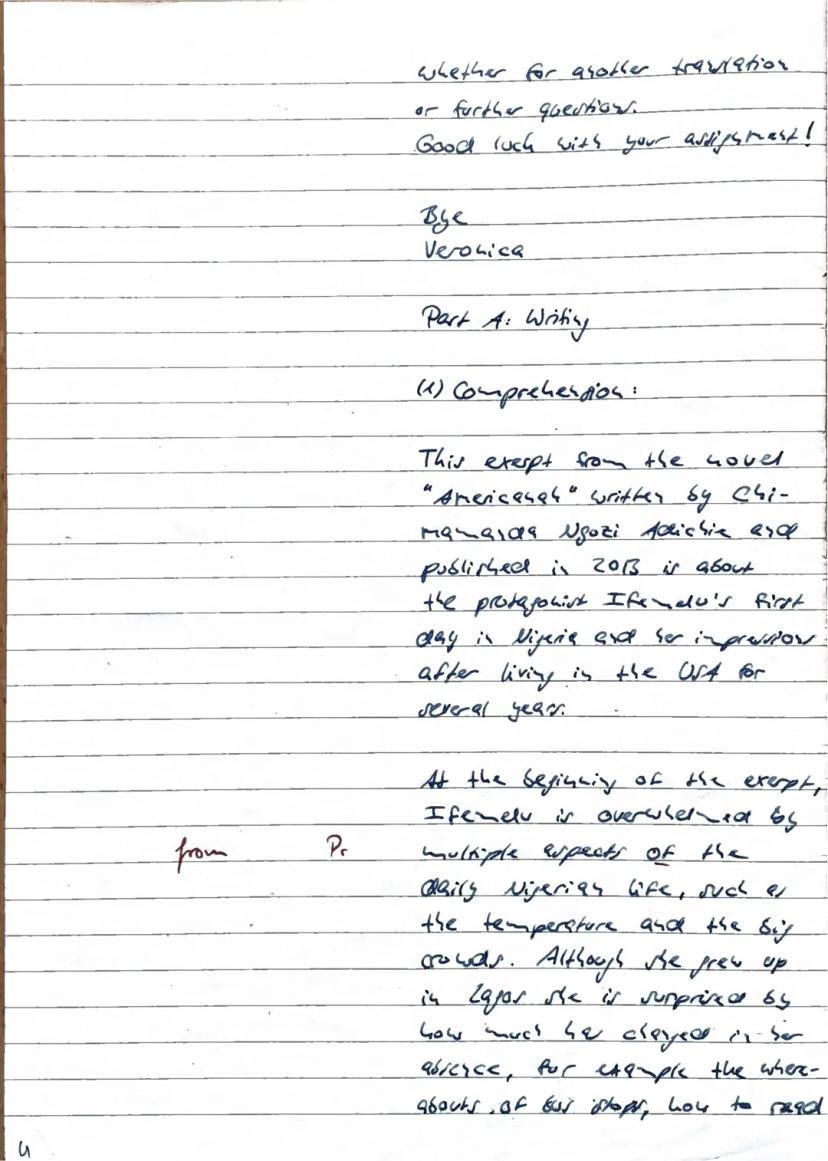 whether for another translation
or further questions.
Good luck with your assignment!
Bye
Veronica
Part A: Writing
(1) Comprehension:
This exerpt from the novel
"Americanah" written by Chi-
mamanda Ngozi Adichie and
published in 2013 is about
the protagonist Ifemelu's first
day in Nigeria and her impressions
after living in the USA for
several years.
At the beginning of the exerpt,
Ifemelu is overwhelmed by
from Pr multiple aspects of the
daily Nigerian life, such as
the temperature and the big
crowds. Although she grew up
in Lagos she is surprised by
how much has changed in her
absence, for example the where-
abouts of bus stops, how to
4